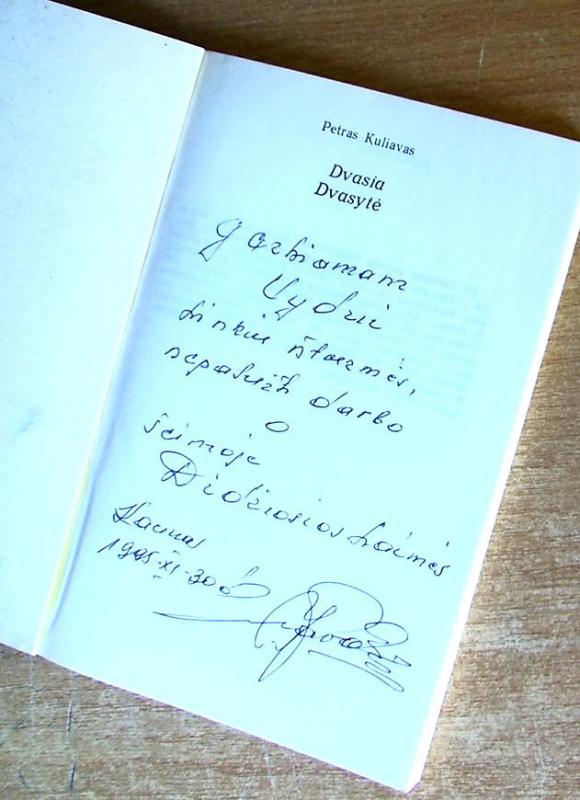 Petras Kuliavas
Dvasia
Dvasytė
Gerbiamam
Vydui
Linkiu ištvermės,
nepalūžti darbo
O
šeimoje
Didžiosios Laimės
Kaunas
1995-XI-30 d